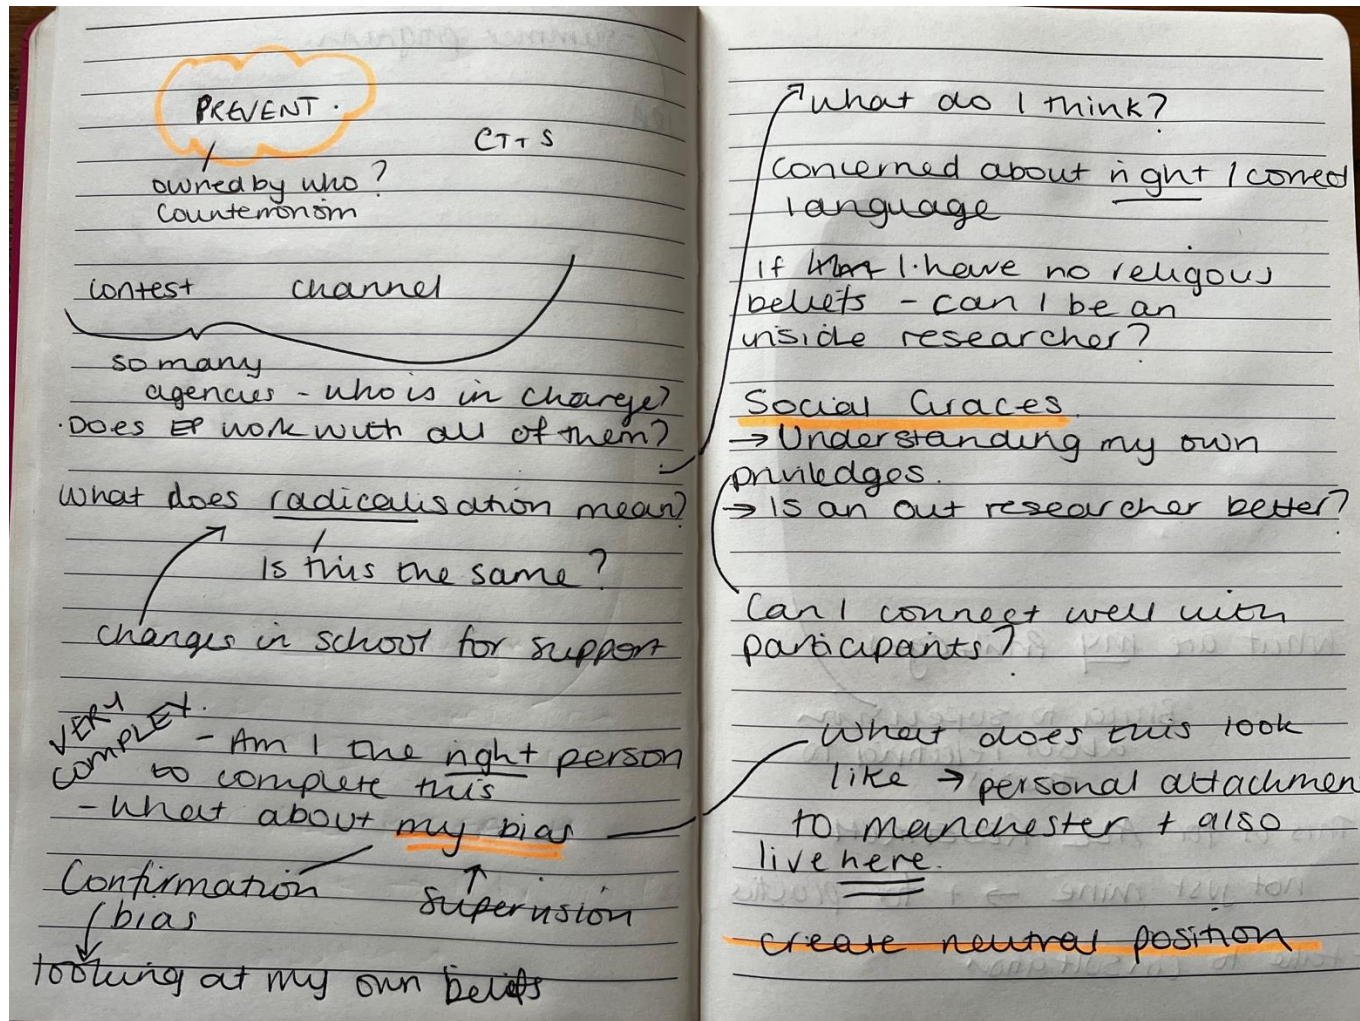 PREVENT.
CT + S
owned by who?
Counterrorism
contest channel
so many
agencies - who is in charge?
·Does EP work with all of them?
What does radicalisation mean?
Is this the same?
changes in school for support
VERY
COMPLEX.
- Am I the right person
to complete this
- what about my bias
Confirmation
bias
supervision
looking at my own beliefs
What do I think?
Concerned about right / correct
language
If I have no religous
beliefs - can I be an
inside researcher?
Social Graces
→ Understanding my own
priviledges.
→ Is an out researcher better?
Can I connect well with
participants?
What does this look
like → personal attachmen
to manchester + also
live here.
create neutral position